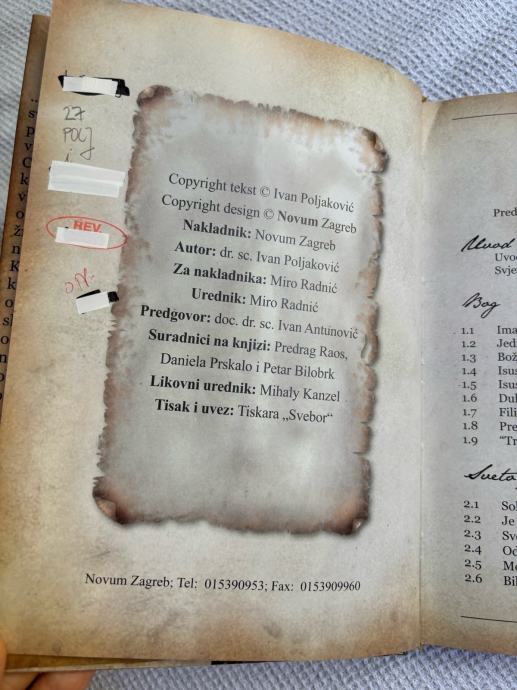 27
POLJ
i
REV.
Copyright tekst © Ivan Poljaković
Copyright design © Novum Zagreb
Nakladnik: Novum Zagreb
Autor: dr. sc. Ivan Poljaković
Za nakladnika: Miro Radnić
Urednik: Miro Radnić
Predgovor: doc. dr. sc. Ivan Antunović
Suradnici na knjizi: Predrag Raos,
Daniela Prskalo i Petar Bilobrk
Likovni urednik: Mihaly Kanzel
Tisak i uvez: Tiskara „Svebor“
Novum Zagreb; Tel: 015390953; Fax: 0153909960
Pred
Uvod
Uvo
Svje
Bog
1.1 Ima
1.2 Jed
1.3 Bož
1.4 Isus
1.5 Isus
1.6 Dul
1.7 Fili
1.8 Pre
1.9 “Tr
Sveto
2.1 Sol
2.2 Je
2.3 Sve
2.4 Od
2.5 Mo
2.6 Bil